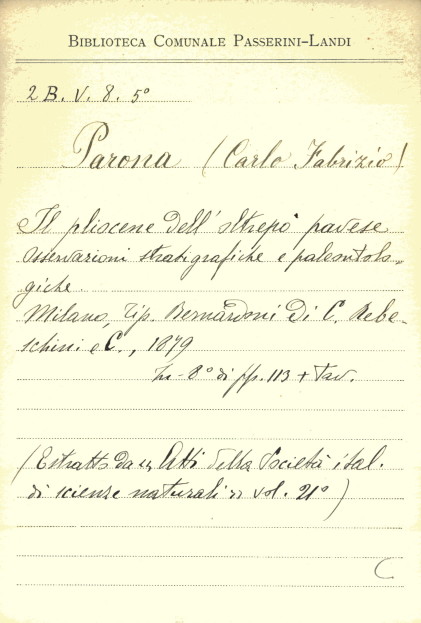 BIBLIOTECA COMUNALE PASSERINI-LANDI
2 B. V. 8. 5°
Parona (Carlo Fabrizio)
Il pliocene dell'oltrepò pavese
Osservazioni stratigrafiche e paleontolo-
giche.
Milano, Tip. Bernardoni di C. Rebe-
schini e C., 1879
In-8° di pp. 113 + tav.
(Estratto da "Atti della Società ital.
di scienze naturali" vol. 21°)
C